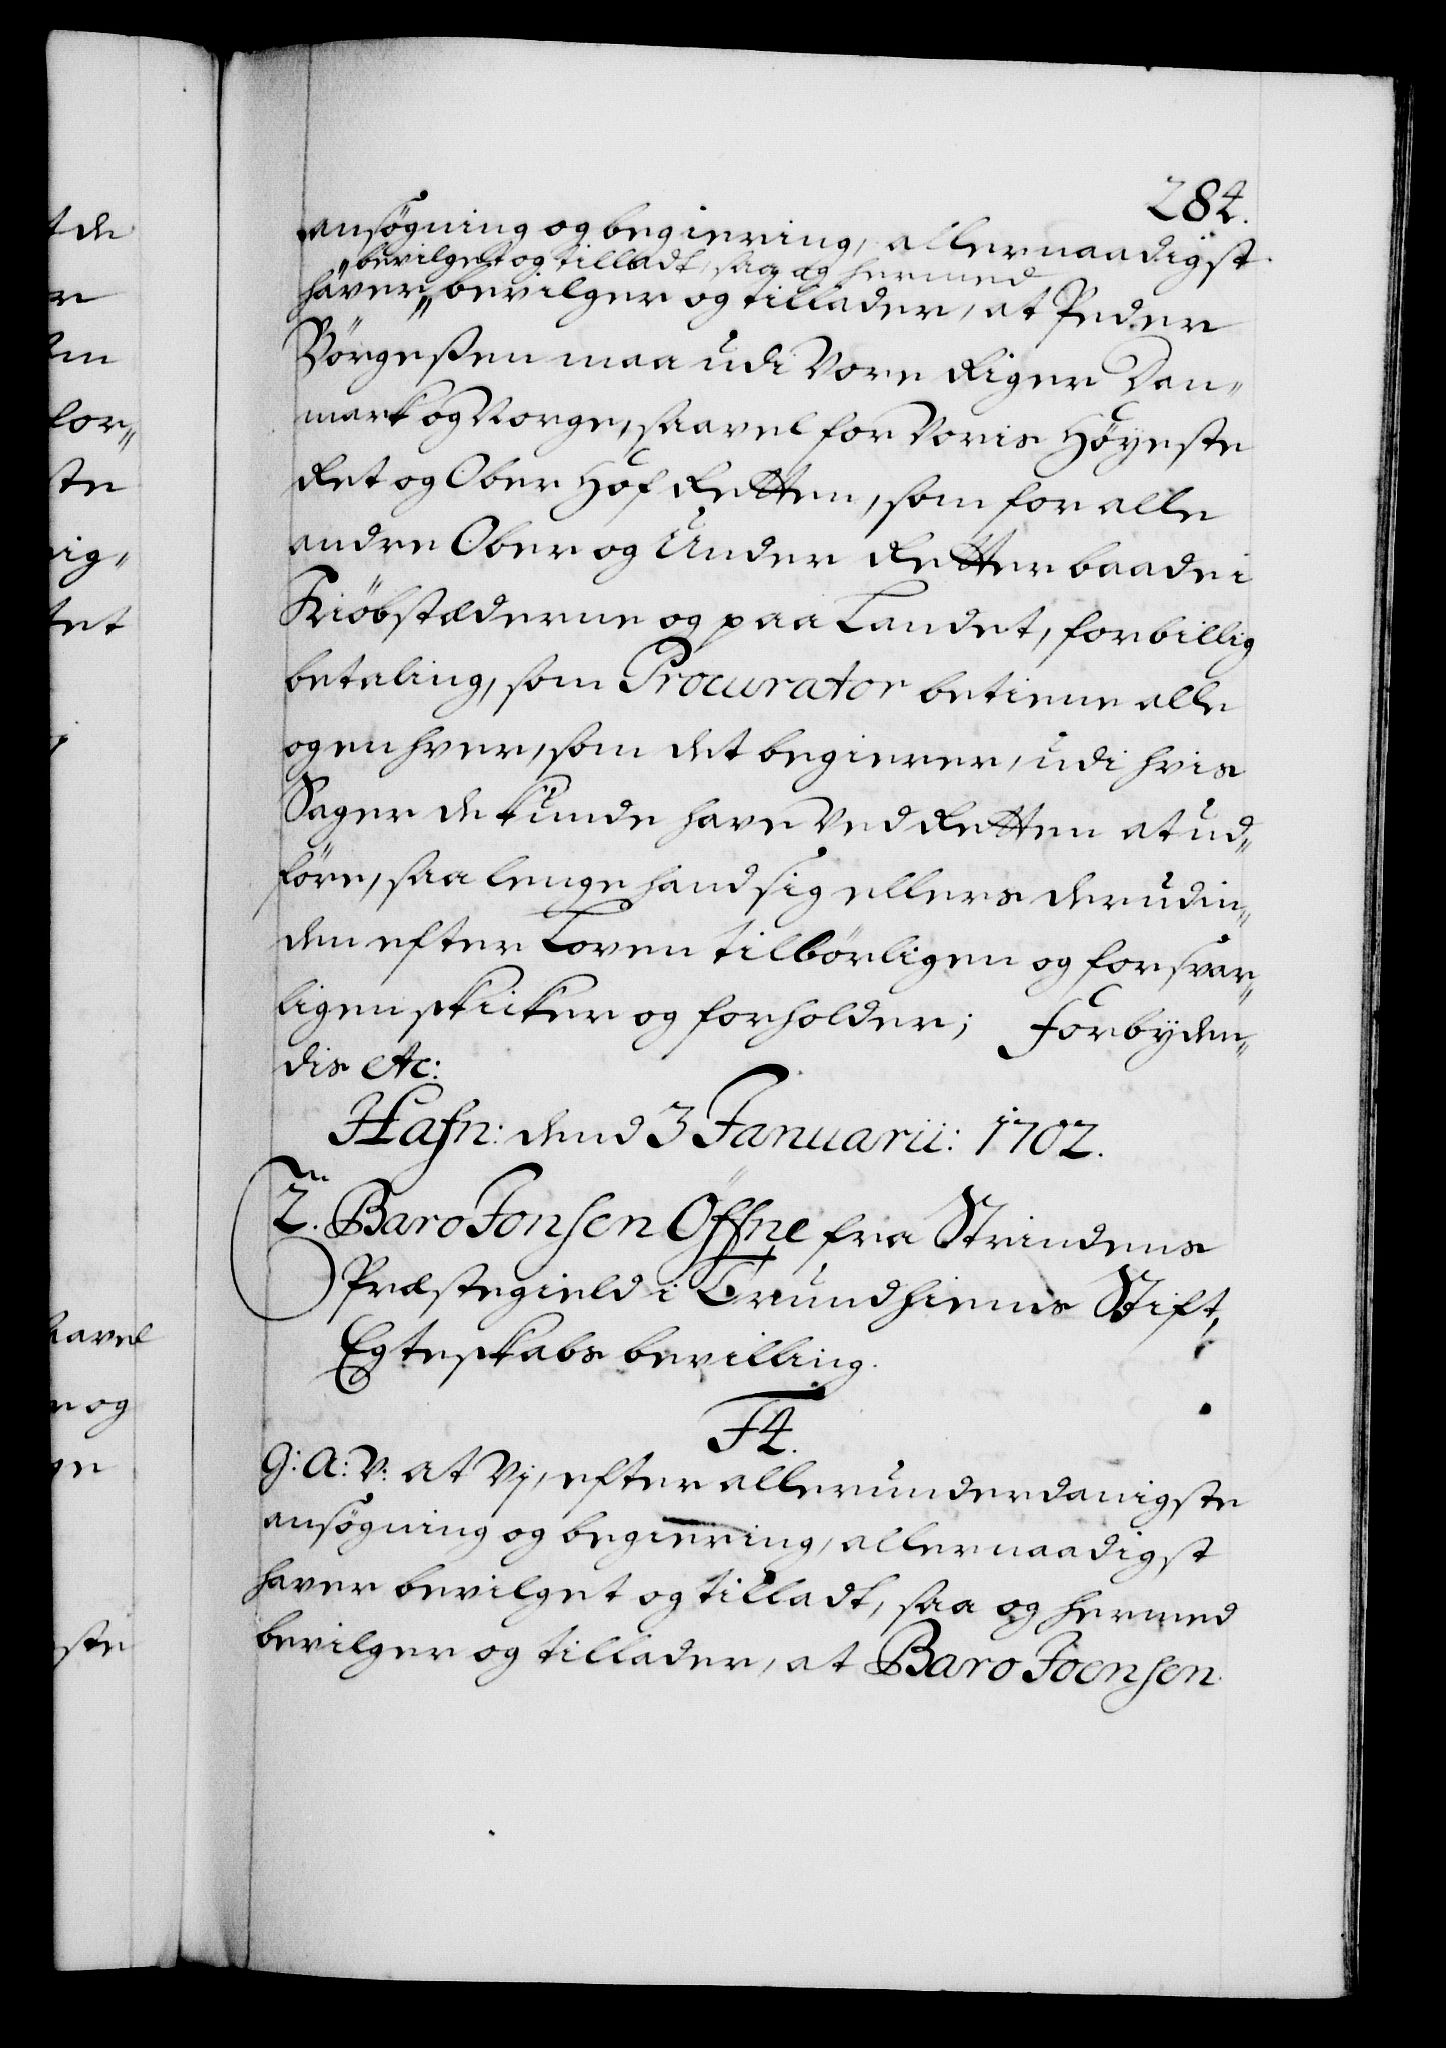 284.
ansögning og begiering, allernaadigst
bevilget og tilladt, saa og hermed
haver, bevilger og tillader, at Peder
Börgeßen maa udi Vore Riger Dan„
mark og Norge, saavel for Voris Höyeste
Ret og Ober Hof Retten, som for alle
andre Ober og Under Retter baade i
Kiöbstæderne og paa Landet, for billig
betaling, som Procurator betiene alle
og en hver, som det begierer, udi hvis
Sager de kunde have ved Retten at ud„
före, saa lenge hand sig ellers derudin„
den efter Loven tilbörligen og forsvar„
ligen skicker og forholder; Forbyden„
dis etc:
Hafn: dend 3 Januarii: 1702.
2. Baro Jonsen Öffne fra Strindens
Præstegield i Trundhiems Stift,
Egteskabs bevilling.
F4.
G: A: V: at Vj, efter allerunderdanigste
ansögning og begiering, allernaadigst
haver bevilget og tilladt, saa og hermed
bevilger og tillader, at Baro Joensen
t de
er
for„
ste
ig„
tet
aavel
og
ge
ste